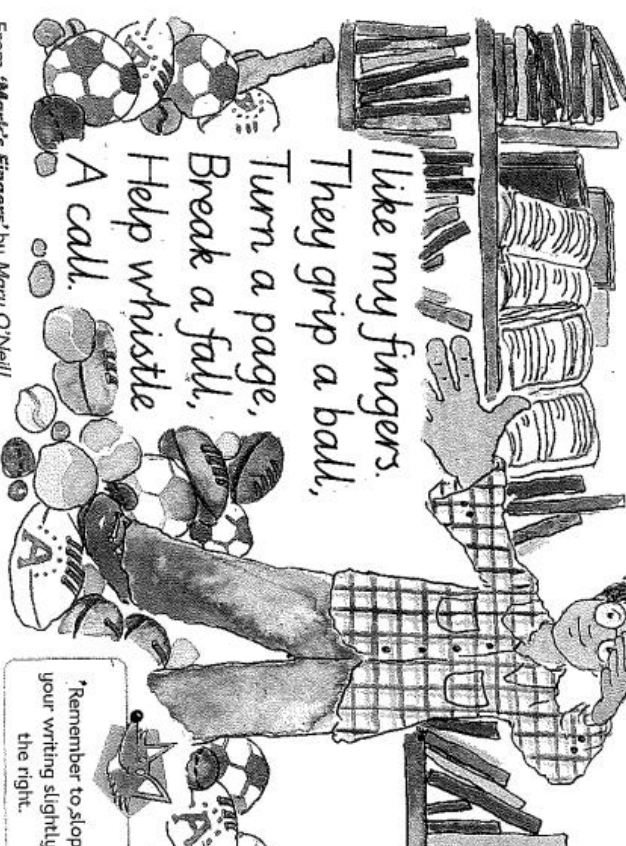 I like my fingers.
They grip a ball,
Turn a page,
Break a fall,
Help whistle
A call.
From 'Mark's Fingers' by Mary O'Neill
'Remember to slop
your writing slightly
the right.
A
A
A
A